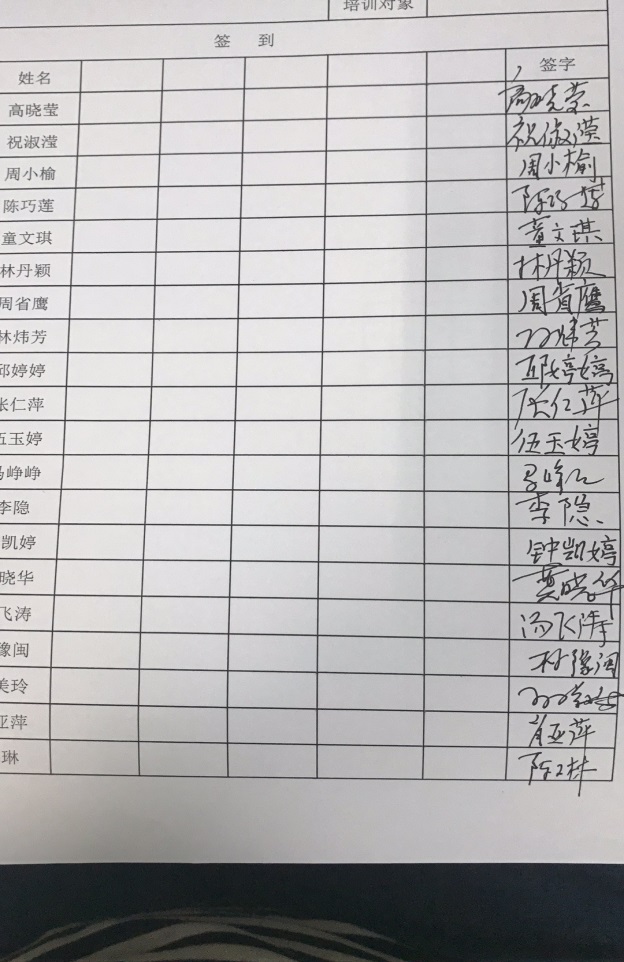 培训对象
签 到
姓名 签字
高晓莹 高晓莹
祝淑滢 祝淑滢
周小榆 周小榆
陈巧莲 陈巧莲
童文琪 童文琪
林丹颖 林丹颖
周省鹰 周省鹰
林炜芳 林炜芳
邱婷婷 邱婷婷
张仁萍 张仁萍
伍玉婷 伍玉婷
马峥峥 马峥峥
李隐 李隐
凯婷 钟凯婷
晓华 龚晓华
飞涛 汤飞涛
豫闽 林豫闽
美玲
亚萍 肖亚萍
琳 陈琳